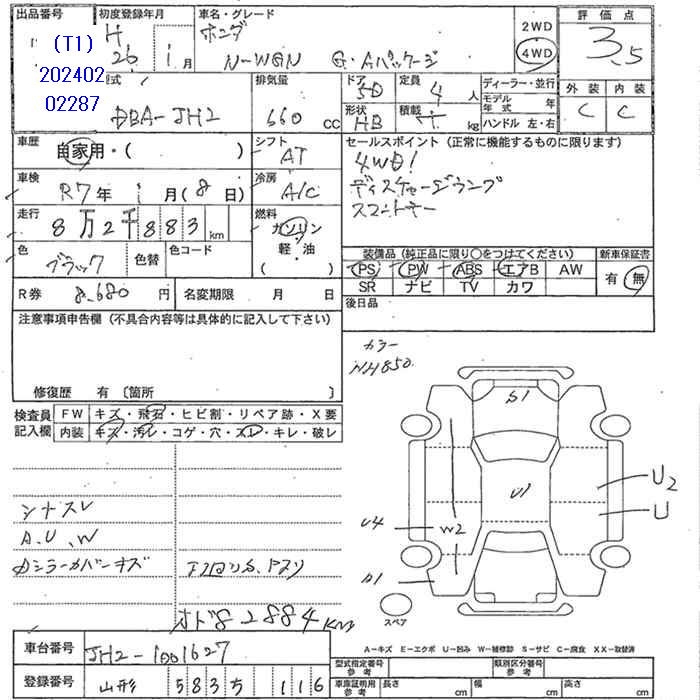 出品番号 初度登録年月 車名・グレード 2WD 評価点
(T1) H ホンダ 4WD 3.5
202402 26年 1月 N-WGN G・Aパッケージ
02287 型式 排気量 ドア 定員 ディーラー・並行 外装 内装
DBA-JH2 660 CC 5D 4人 モデル年式 年 C C
形状 積載 ハンドル 左・右
HB kg
車歴 自家用・( ) シフト AT セールスポイント(正常に機能するものに限ります)
車検 R7年 1月(8日) 冷房 A/C 4WD!
走行 8万2千883km 燃料 ガソリン・軽・油 ( )
スマートキー
色 ブラック 色替 色コード 装備品(純正品に限り○をつけてください) 新車保証書
PS PW ABS エアB AW 有・無
R券 8,680円 名変期限 月 日 SR ナビ TV カワ
後日品
注意事項申告欄(不具合内容等は具体的に記入して下さい)
カラー
NH850
修復歴 有〔箇所 〕
検査員 FW キズ・飛石・ヒビ割・リペア跡・X要
記入欄 内装 キズ・汚レ・コゲ・穴・スレ・キレ・破レ
S1
U1
U2
U
U4
W2
A1
シナスレ
A.U.W
オド82884KM
スペア
A-キズ E-エクボ U-凹み W-補修跡 S-サビ C-腐食 XX-取替済
車台番号 JH2-1001627
登録番号 山形 583 116
型式指定番号 参考 類別区分番号 参考
車庫証明用 参考 長さ cm 幅 cm 高さ cm